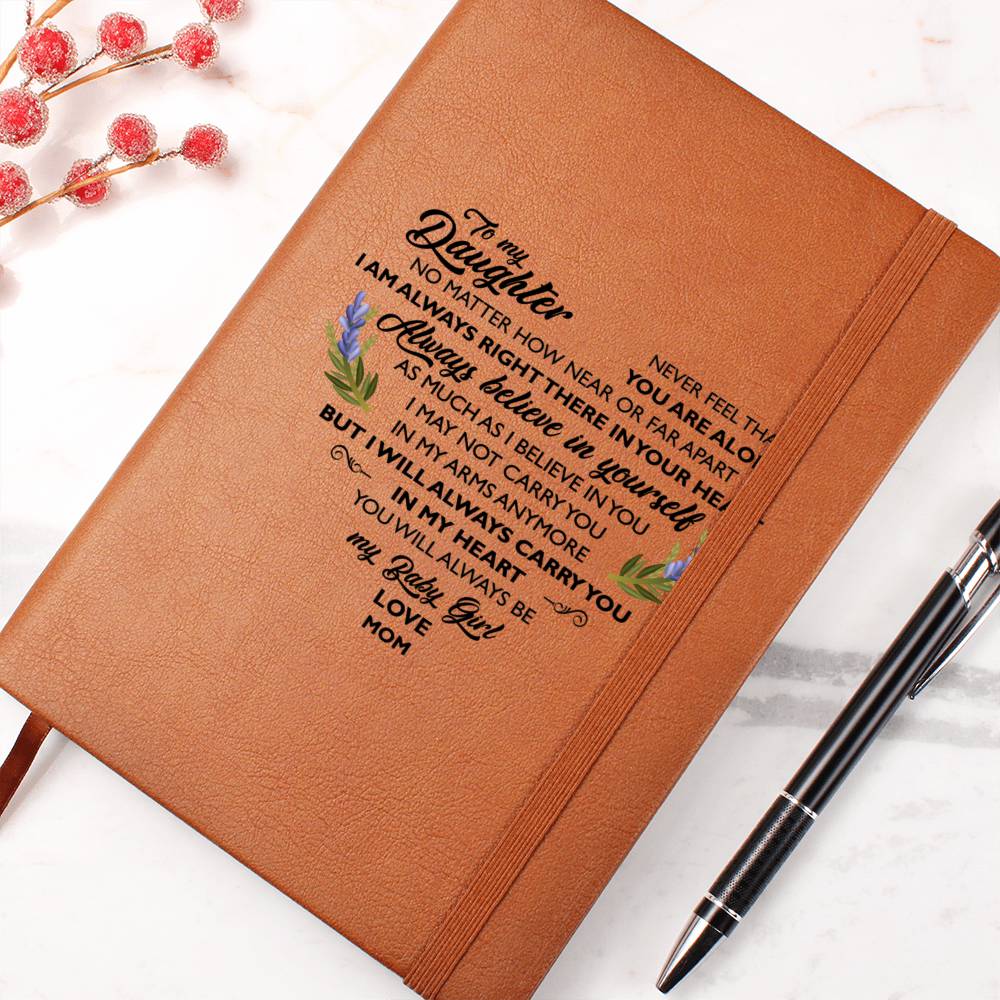 To my
Daughter
NEVER FEEL THA
NO MATTER HOW NEAR OR FAR APART
YOU ARE ALO
I AM ALWAYS RIGHT THERE IN YOUR HEA
Always believe in yourself
AS MUCH AS I BELIEVE IN YOU
I MAY NOT CARRY YOU
IN MY ARMS ANYMORE
BUT I WILL ALWAYS CARRY YOU
IN MY HEART
YOU WILL ALWAYS BE
my Baby Girl
LOVE
MOM